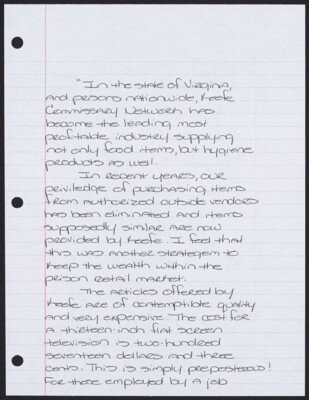 "In the state of Virginia,
and persons nationwide, Keefe
Commissary Network has
become the leading most
profitable industry supplying
not only food items, but hygiene
products as well.
In recent years, our
priviledge of purchasing items
from authorized outside vendors
has been eliminated and items
supposedly similar are now
provided by Keefe. I feel that
this was another strategem to
keep the wealth within the
prison retail market.
The articles offered by
Keefe are of contemptible quality
and very expensive. The cost for
a thirteen-inch flat screen
television is two-hundred
seventeen dollars and three
cents. This is simply preposterous!
For those employed by a job